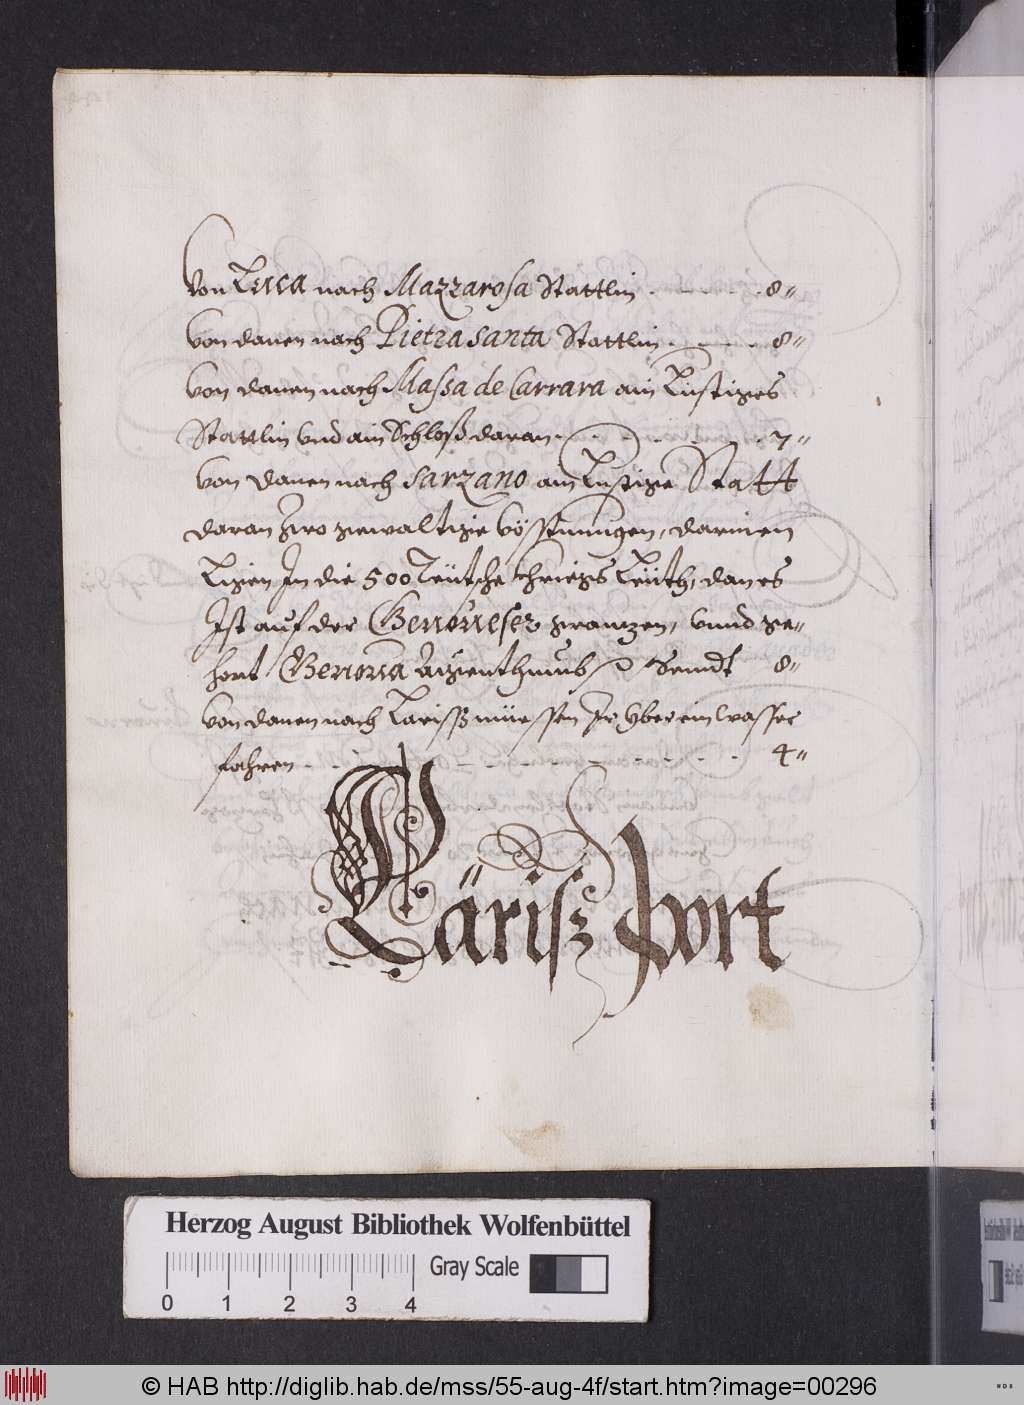 Von Luca nach Mazzarosa Stattlin . . . . . 8"
Von danen nach Pietra santa Stattlin . . . . 8"
Von danen nach Massa de Carrara ain Lustiges
Stattlin Vnd ain Schloß daran . . . . . . 7"
Von danen nach Sarzano ain Lustige Statt
daran zwo gewaltige Vösstungen, darinen
Ligen In die 500 Teütsche Kriegs Leüth, dan es
Ist auf der Genoueser granizen, vnnd ge-
hort Genoua Aigenthumb Seindt 8"
Von danen nach Lariß müessen Ir yber ein wasser
fahren . . . . . . . . . . 4"
Läriß Port
Herzog August Bibliothek Wolfenbüttel
Gray Scale
0 1 2 3 4
© HAB http://diglib.hab.de/mss/55-aug-4f/start.htm?image=00296